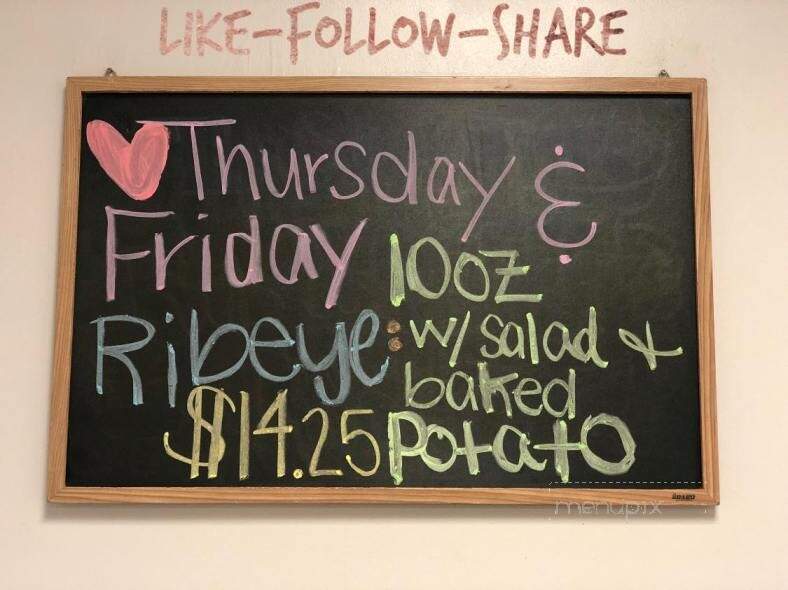 LIKE-FOLLOW-SHARE
Thursday &
Friday
10oz
Ribeye:
w/ salad &
baked
potato
$14.25
menupix